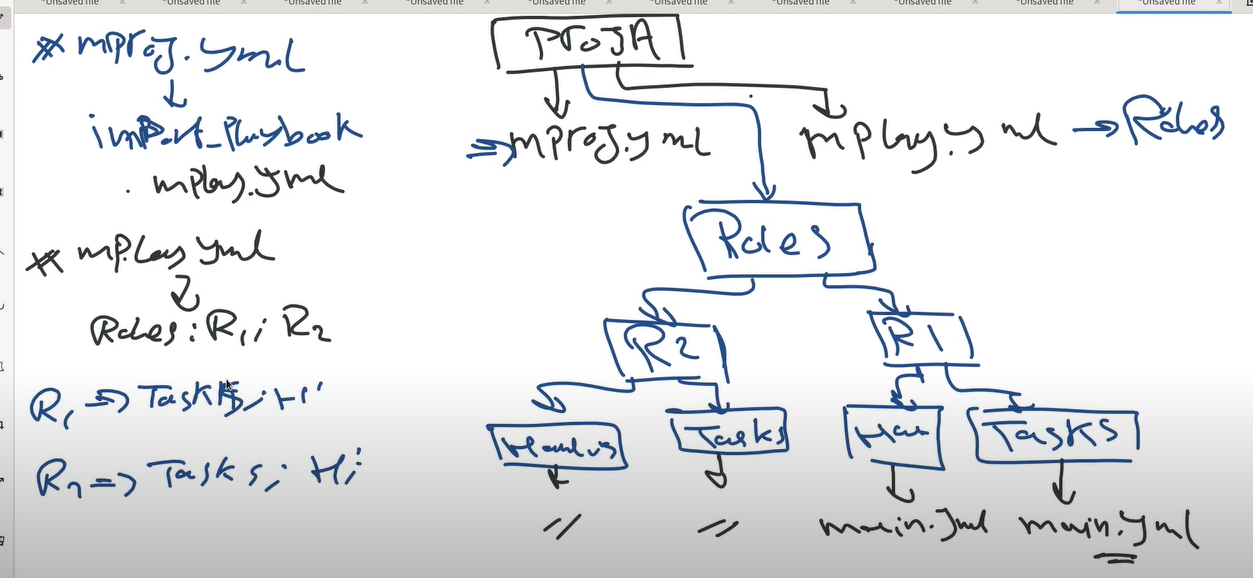 *Unsaved file *Unsaved file *Unsaved file *Unsaved file *Unsaved file *Unsaved file *Unsaved file *Unsaved file *Unsaved file *Unsaved file
* mproj.yml
import_Playbook
. mplay.yml
* mplay yml
Roles: R1; R2
R1 => Tasks; H
R2 => Tasks; H
ProjA
=> mproj.yml
mplay.yml -> Roles
Roles
R2
R1
Tasks
Han
Tasks
//
//
main.yml
main.yml